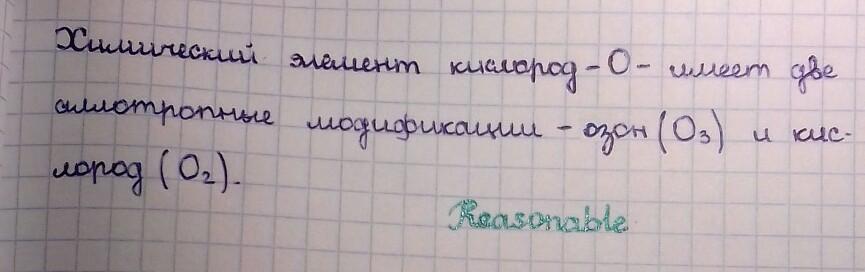 Химический элемент кислород - O - имеет две
аллотропные модификации - озон (O₃) и кис-
лород (O₂).
Reasonable